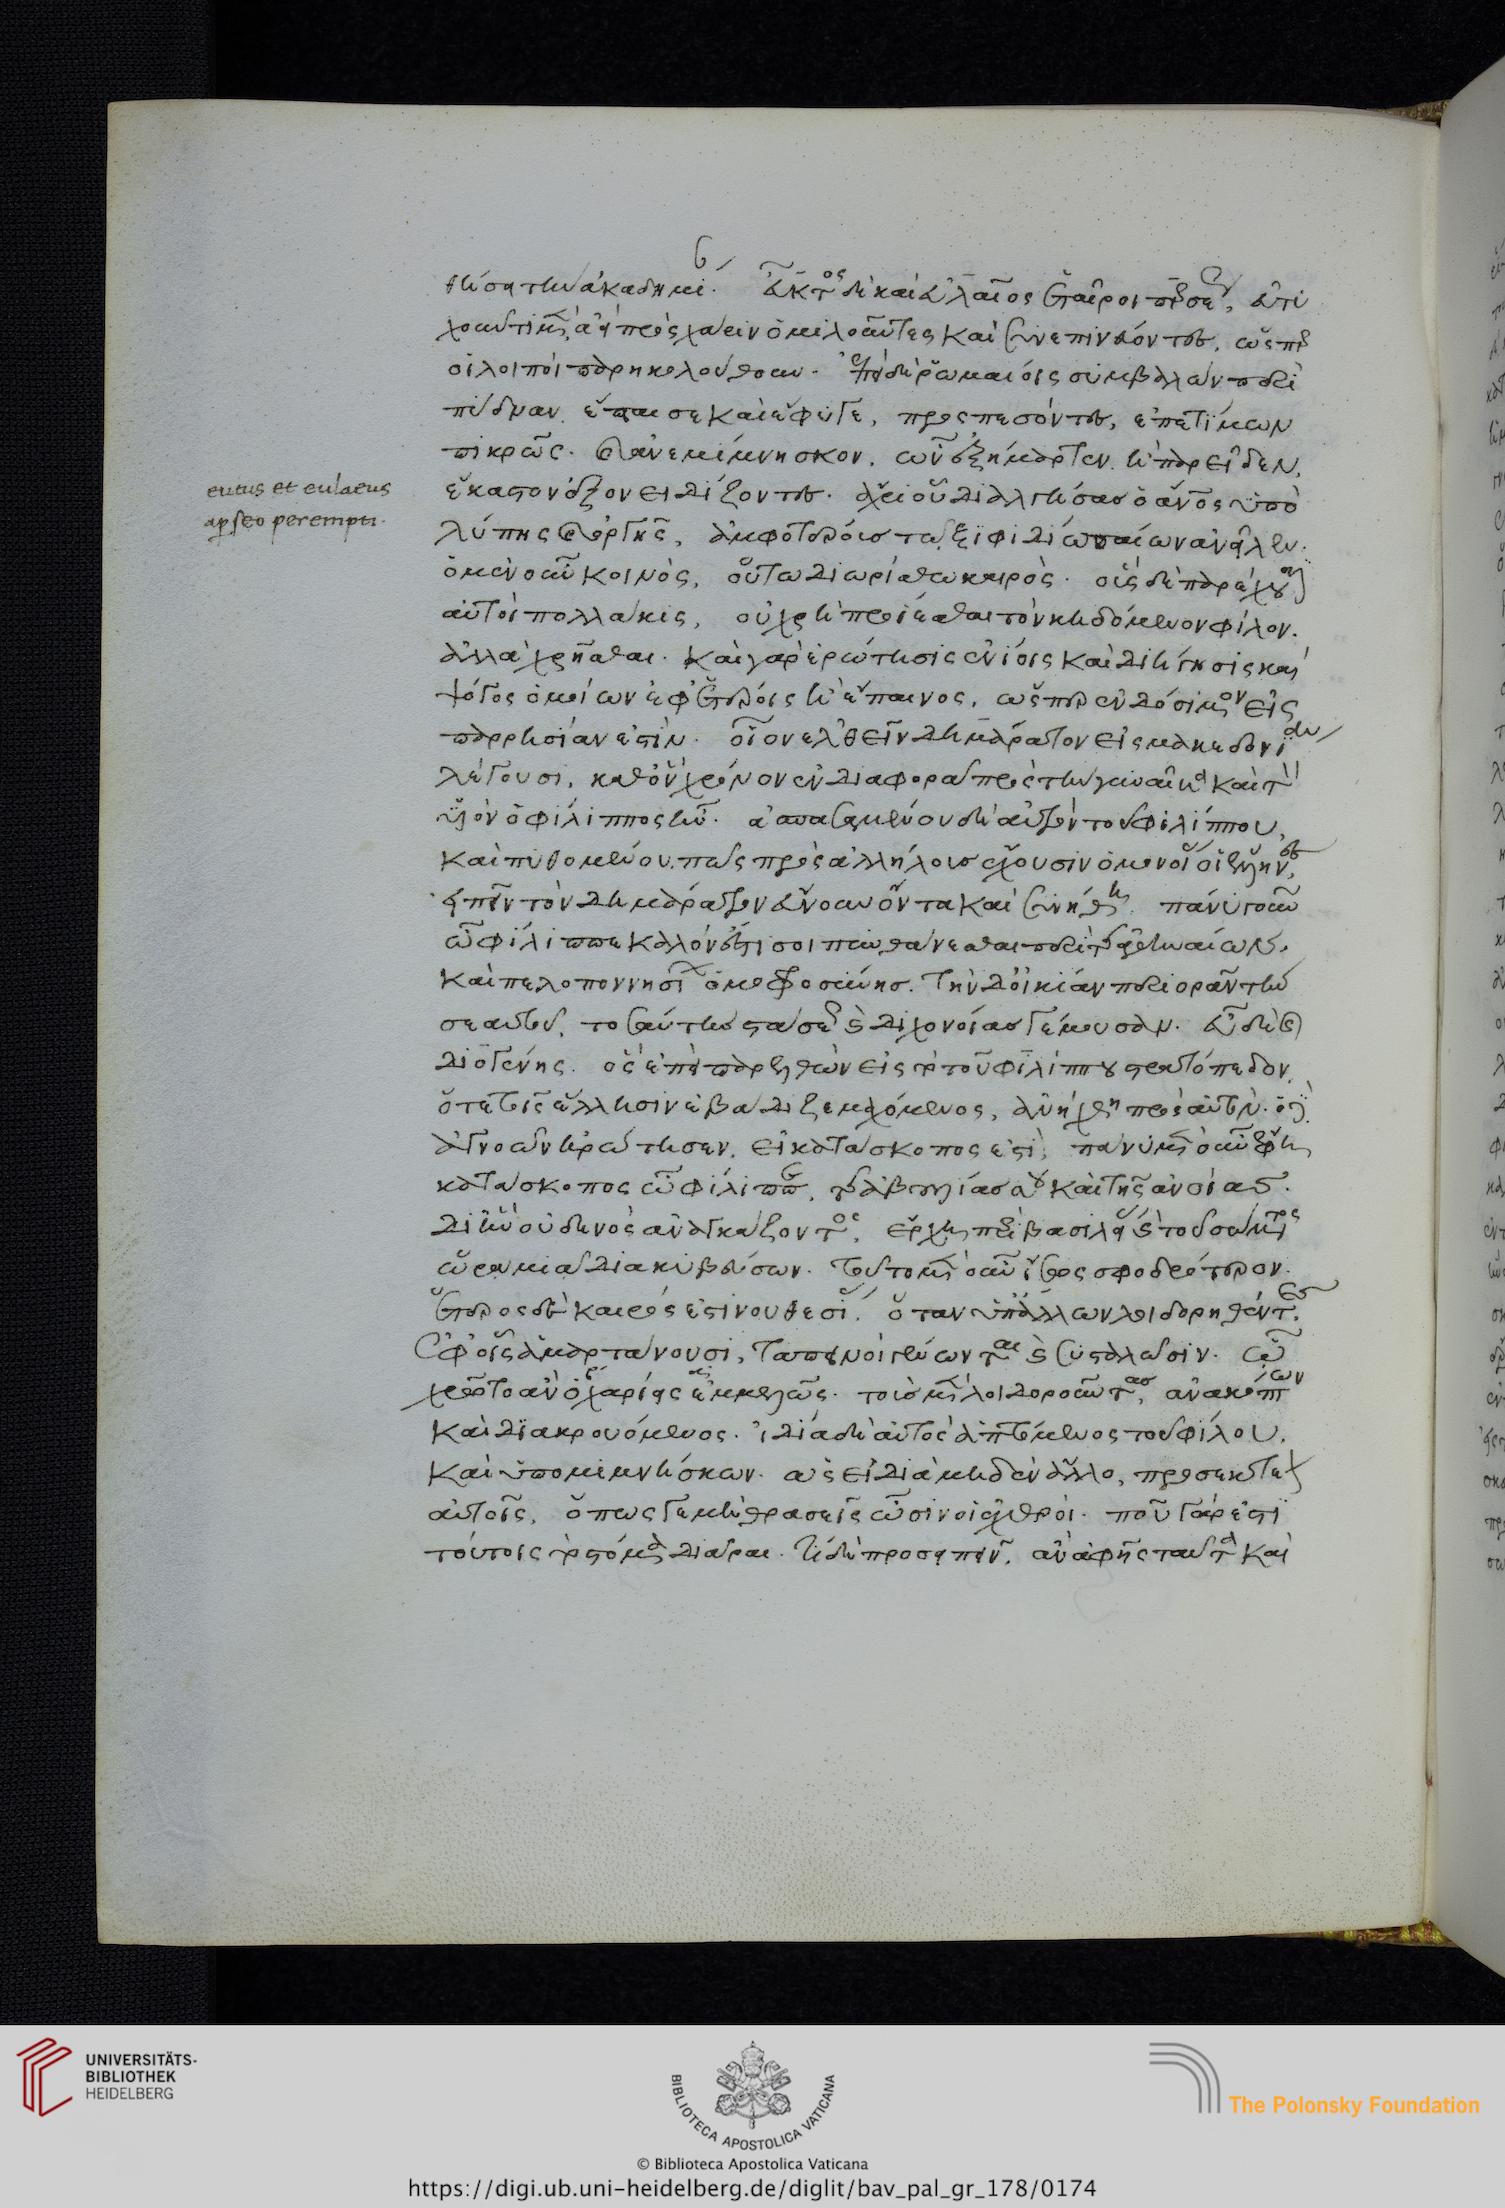 θήσῃ τὴν ἀκαδημί. Εὖκτος δὲ καὶ εὔλαιος ἑταῖροι περσέως, εὐτυ
χοῦντι μὲν ἀεὶ πρὸς χάριν ὁμιλοῦντες καὶ συνεπινεύοντες, ὥσπερ
οἱ λοιποὶ παρηκολούθουν. ἐπεὶ δὲ ῥωμαίοις συμβαλὼν περὶ
πύδναν ἔπταισε καὶ ἔφυγε, προσπεσόντες, ἐπετίμων
πικρῶς. καὶ ἀνεμίμνησκον, ὧν ἐξήμαρτεν ἢ παρεῖδεν,
ἕκαστον ἐξονειδίζοντες. ἄχρι οὗ διαλγήσας ὁ ἄνος ὑπὸ
eutus et eulaeus
a perseo perempti.
λύπης καὶ ὀργῆς, ἀμφοτέρους τῷ ξιφιδίῳ παίων ἀνεῖλεν.
ὁ μὲν οὖν κοινὸς, οὕτω διωρίσθω καιρὸς. οὓς δὲ παρέχουσιν
αὐτοὶ πολλάκις, οὐ χρὴ προΐεσθαι τὸν κηδόμενον φίλον.
ἀλλὰ χρῆσθαι. καὶ γὰρ ἐρώτησις ἐνίοις καὶ διήγησις καὶ
ψόγος ὁμοίων ἐφ' ἑτέροις ἢ ἔπαινος, ὥσπερ ἐνδόσιμον εἰς
παρρησίαν ἐστὶν. οἷον ἐλθεῖν δημάρατον εἰς μακεδονίαν
λέγουσι, καθ' ὃν χρόνον ἐν διαφορᾷ πρὸς τὴν γυναῖκα καὶ τὸν
υἱὸν ὁ φίλιππος ἦν. ἀσπασαμένου δὲ αὐτὸν τοῦ φιλίππου,
καὶ πυθομένου, πῶς πρὸς ἀλλήλους ἔχουσιν ὁμονοί οἱ ἕλληνες,
εἰπεῖν τὸν δημάρατον εὔνουν ὄντα καὶ συνήθη. πάνυ γοῦν
ὦ φίλιππε καλόν ἐστί σοι πυνθάνεσθαι περὶ τῆς ἀθηναίων,
καὶ πελοποννησίων ὁμοφροσύνης. τὴν δ' οἰκίαν περιορᾶν τὴν
σεαυτοῦ, τοσαύτης στάσεως καὶ διχονοίας γέμουσαν. εὖ δὲ καὶ
διογένης. ὃς ἐπεὶ παρελθὼν εἰς τὸ τοῦ φιλίππου στρατόπεδον,
ὅτε τοῖς ἕλλησιν ἐβάδιζε μαχόμενος, ἀνήχθη πρὸς αὐτὸν. ὁ δὲ
ἀγνοῶν ἠρώτησεν, εἰ κατάσκοπος ἐστὶ; πάνυ μὲν οὖν ἔφη
κατάσκοπος ὦ φίλιππε, τῆς ἀβουλίας σου καὶ τῆς ἀνοίας.
δι' ἣν οὐδενὸς ἀναγκάζοντος, ἔρχῃ περὶ βασιλείας καὶ τοῦ σώματος
ὥρᾳ μιᾷ διακυβεύσων. τοῦτο μὲν οὖν ἴσως σφοδρότερον.
ἕτερος δὲ καιρός ἐστι νουθεσίας, ὅταν ὑπ' ἄλλων λοιδορηθέντες,
ἐφ' οἷς ἁμαρτάνουσι, ταπεινοὶ γένωνται καὶ συσταλῶσιν. ᾧ
χρῷτο ἂν ὁ χαρίεις ἐμμελῶς. τοὺς μὲν λοιδοροῦντας, ἀνακόπτων
καὶ διακρουόμενος. ἰδίᾳ δὲ αὐτὸς ἁπτόμενος τοῦ φίλου,
καὶ ὑπομιμνήσκων. ὡς εἰ διὰ μηδὲν ἄλλο, προσεκτέον
αὐτοῖς, ὅπως γε μὴ θρασεῖς ὦσιν οἱ ἐχθροὶ. ποῦ γάρ ἐστι
τούτοις τὸ στόμα διᾶραι. τί δὲ προσειπεῖν, ἂν ἀφῇς ταῦτα καὶ
UNIVERSITÄTS-
BIBLIOTHEK
HEIDELBERG
BIBLIOTECA APOSTOLICA VATICANA
© Biblioteca Apostolica Vaticana
The Polonsky Foundation
https://digi.ub.uni-heidelberg.de/diglit/bav_pal_gr_178/0174